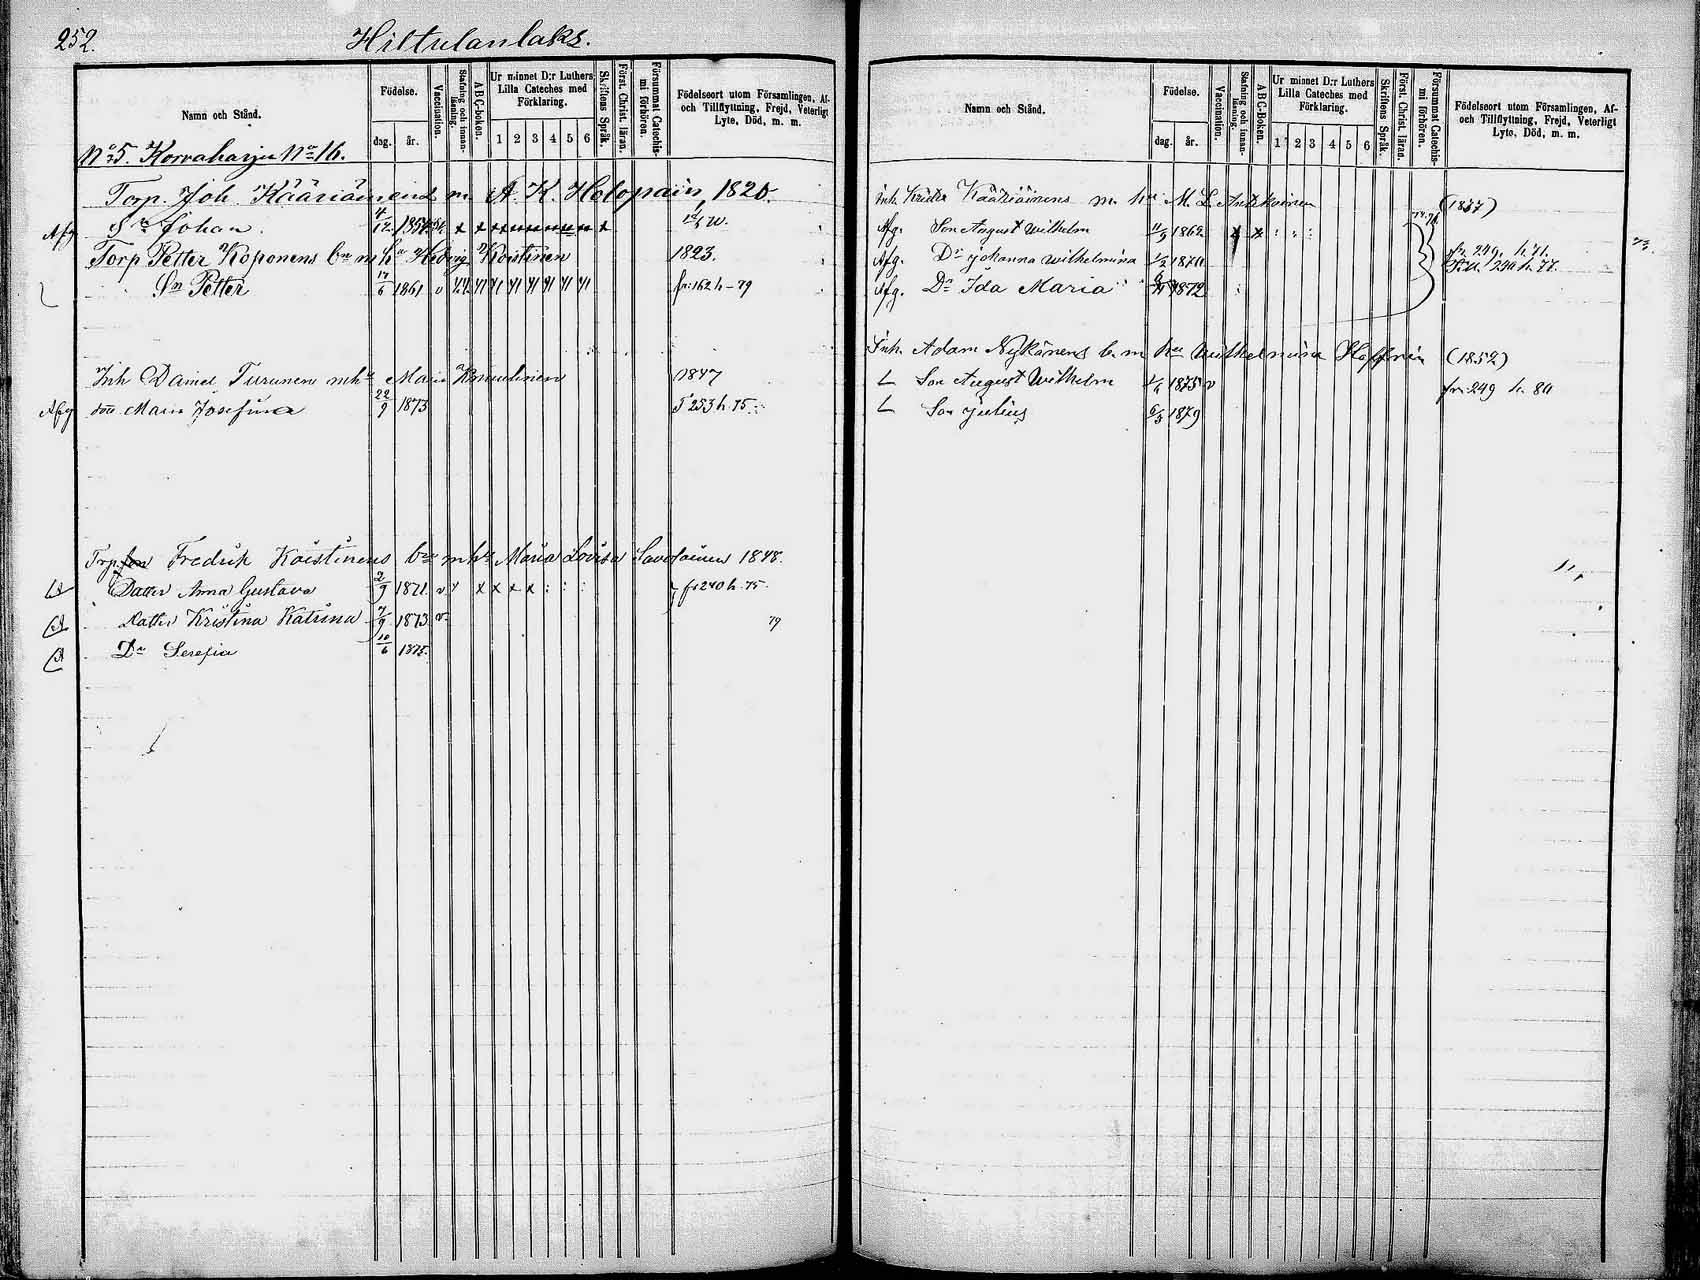 252.
Hiltulanlaks.
Namn och Stånd.
Födelse.
dag. år.
Vaccination.
Stafning och innan-läsning.
A B C-boken.
Ur minnet D:r Luthers Lilla Cateches med Förklaring.
1 2 3 4 5 6
Skriftens Språk.
Först. Christ. läran.
Försummat Catechis-mi förhören.
Födelseort utom Församlingen, Af- och Tillflyttning, Frejd, Veterligt Lyte, Död, m. m.
No 5. Korvaharju No 16.
Torp. Joh. Kääriäinens m A. K. Holopain, 1820.
Afg Sn Johan. 4/12 1854
Torp Petter Koponens bn m hu Hedvig Koistinen 1823.
Sn Petter 17/6 1861 v fr: 162 h - 79
Inh Daniel Turunen mhu Maria 1847
Afg Maria Josefina 22/9 1873 253 h. 75.
Torp Fredrik Koistinens bn mhu Maria Lovisa Savolainen 1848.
Datter Anna Gustava 2/9 1871. v fr 240 h. 75.
Datter Kristina Katrina 7/9 1873 v 79
Dr Serefia 10/6 1875.
Namn och Stånd.
Födelse.
dag. år.
Vaccination.
Stafning och innan-läsning.
A B C-Boken.
Ur minnet D:r Luthers Lilla Cateches med Förklaring.
1 2 3 4 5 6
Skriftens Språk.
Först. Christ. läran.
Försummat Catechis-mi förhören.
Födelseort utom Församlingen, Af- och Tillflyttning, Frejd, Veterligt Lyte, Död, m. m.
Inh Krister Kääriäinens m hu M. L. Antikainen (1837)
Afg. Son August Wilhelm 11/9 1862
Afg. Dr Johanna Wilhelmina 1/2 1870 fr. 249. h. 71.
Afg. Dr Ida Maria 1872
Inh. Adam Nykänens b. m hu Wilhelmina Staffrin (1852)
L Son August Wilhelm 1875 v fr: 249 h. 80
L Son Julius 6/3 1879